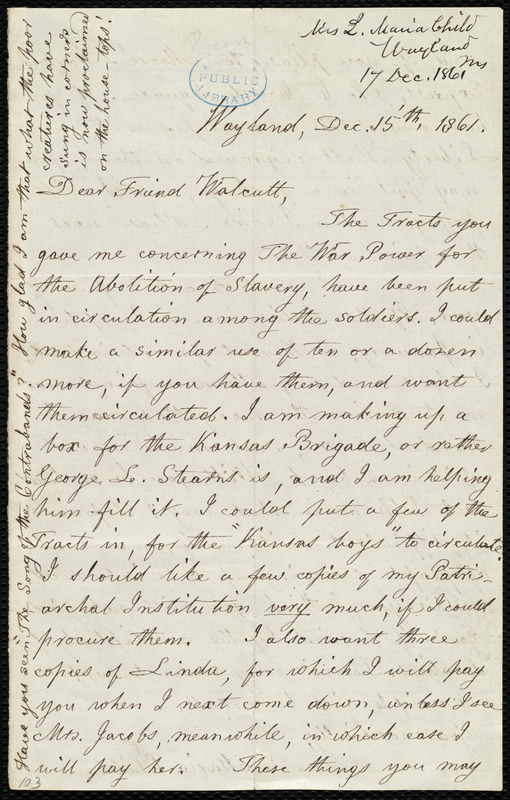 Mrs L. Maria Child
Wayland
Ms
17 Dec. 1861
PUBLIC
LIBRARY
Wayland, Dec. 15th, 1861.
Dear Friend Walcutt,
The Tracts you
gave me concerning The War Power for
the Abolition of Slavery, have been put
in circulation among the soldiers. I could
make a similar use of ten or a dozen
more, if you have them, and want
them circulated. I am making up a
box for the Kansas Brigade, or rather
George L. Stearns is, and I am helping
him fill it. I could put a few of the
Tracts in, for the "Kansas boys" to circulate.
I should like a few copies of my Patri-
archal Institution very much, if I could
procure them. I also want three
copies of Linda, for which I will pay
you when I next come down, unless I see
Mrs. Jacobs, meanwhile, in which case I
will pay her. These things you may
Have you seen "The Song of the Contrabands"? How glad I am that what the poor
creatures have
sung in corners
is now proclaimed
on the house-tops!
103